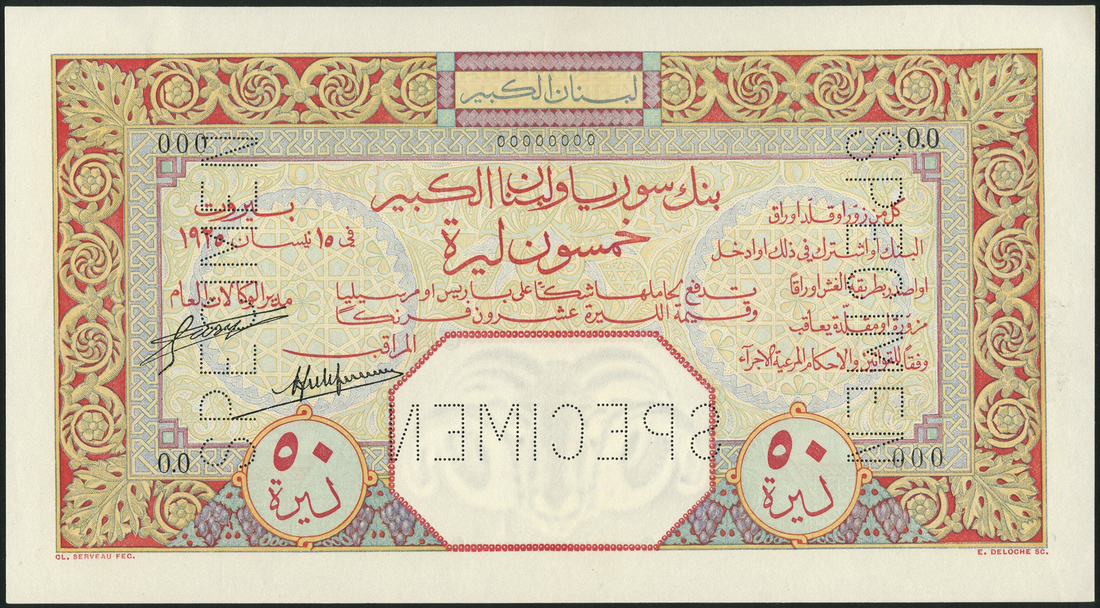 لبنان الكبير
00000000
000
0.0
بنك سوريا ولبنان الكبير
خمسون ليرة
تدفع لحاملها شكاً على باريس او مرسيليا
وقيمة الليرة عشرون فرنكاً
كل من زور او قلد اوراق
البنك او اشترك في ذلك او ادخل
او اصدر بطريقة الغش اوراقاً
مزورة او مقلدة يعاقب
وفقاً للقوانين والاحكام المرعية الاجرآء
بيروت
في ١٥ نيسان ١٩٢٥
مدير الوكالات العام
المراقب
SPECIMEN
SPECIMEN
SPECIMEN
0.0
000
٥٠
ليرة
٥٠
ليرة
CL. SERVEAU FEC.
E. DELOCHE SC.